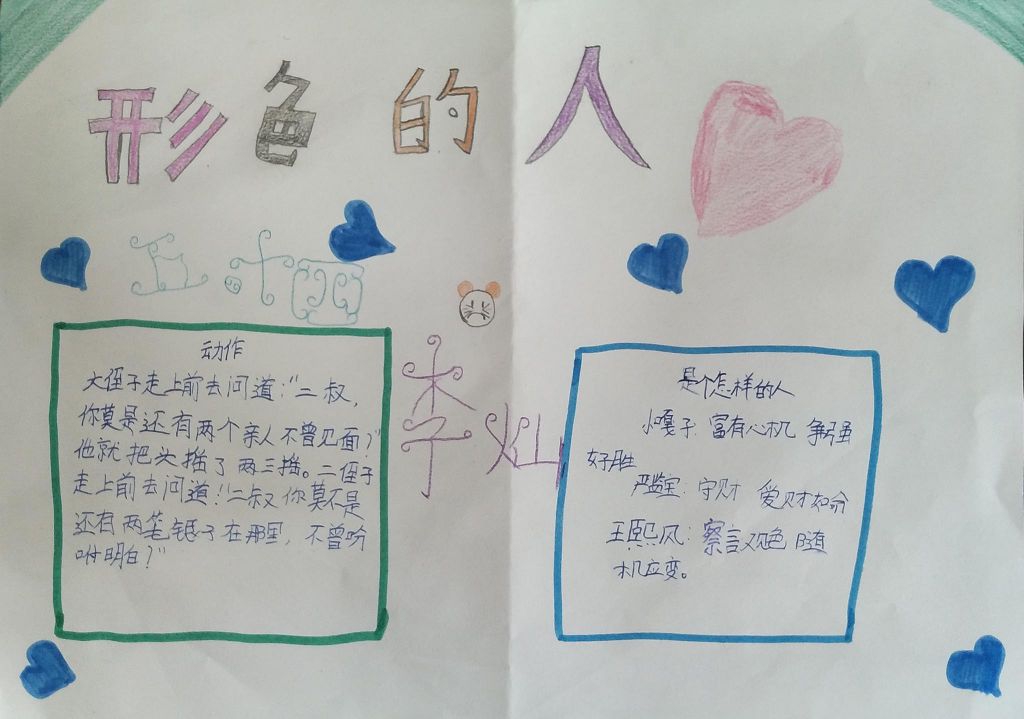 形色的人
五十四
李灿
动作
大侄子走上前去问道:“二叔,
你莫是还有两个亲人不曾见面?”
他就把头摇了两三摇。二侄子
走上前去问道:“二叔你莫不是
还有两笔银子在那里,不曾吩
咐明白?”
是个怎样的人
小嘎子:富有心机 争强
好胜
严监生:守财 爱财如命
王熙凤:察言观色 随
机应变。